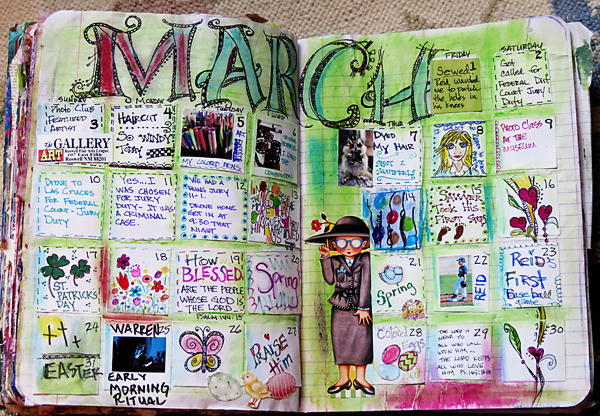 MARCH
SUNDAY
MONDAY
TUESDAY
THUR
FRIDAY
SATURDAY
1
Sewed!
Reid wanted
me to patch
the holes in
his knees
2
Got
called for
Federal Dist
Court Jury
Duty
3
Photo Club
Featured
Artist
The GALLERY
ART
Roswell Fine Arts League
Roswell NM 88201
4
HAIRCUT
SO WINDY
TODAY
5
MY COLORED PENS
6
7
DYED
MY HAIR
8
9
PHOTO CLASS
AT THE
MUSEUM
10
DROVE TO
LAS CRUCES
FOR FEDERAL
COURT-JURY
DUTY
11
YES...I
WAS CHOSEN
FOR JURY
DUTY - IT WAS
A CRIMINAL
CASE.
12
WE HAD A
HUNG JURY
11-1.
DROVE HOME
GOT IN AT
9:30 THAT
NIGHT
13
14
15
SAWYER
TOOK
FIRST STEPS
16
17
ST.
PATRICKS
DAY
18
19
HOW
BLESSED
ARE THE PEOPLE
WHOSE GOD IS
THE LORD.
PSALM 144:15
20
Spring
21
Spring
22
REID
23
REID
FIRST
Baseball
game
24
31
EASTER
25
WARREN
EARLY
MORNING
RITUAL
26
27
PRAISE
HIM
28
Colored
Eggs
29
THE LORD IS
NEAR TO
ALL WHO CALL
UPON HIM...
THE LORD KEEPS
ALL WHO LOVE
HIM
30